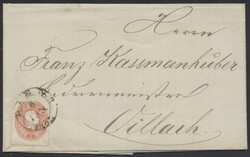 Herrn
Franz Kassmannhuber
Ledermeister
Villach.